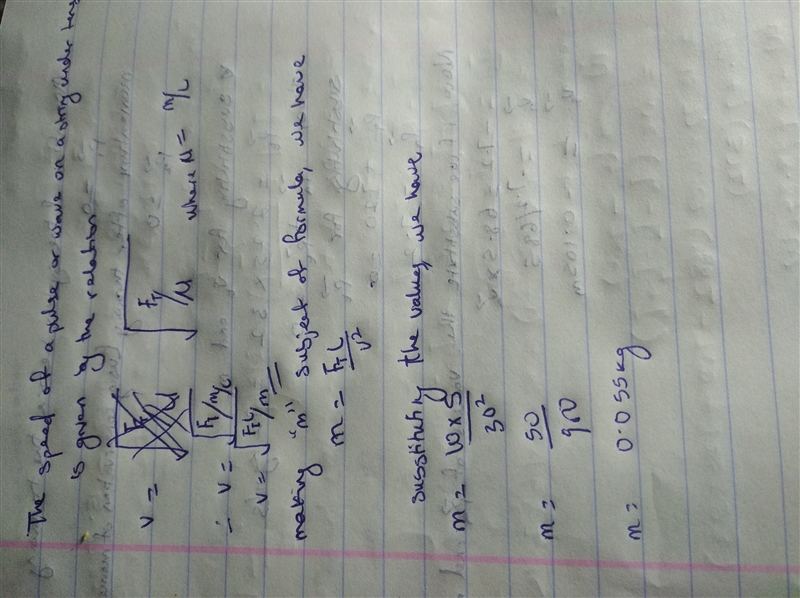 The speed of a pulse or wave on a string under
is given by the relation
V = √F_T/μ where μ = m/L
∴ V = √F_T/m/L
V = √F_T L/m
making "m" subject of formula, we have
m = F_T L/V²
substituting the values, we have
m = 10 x 5/30²
m = 50/900
m = 0.055kg